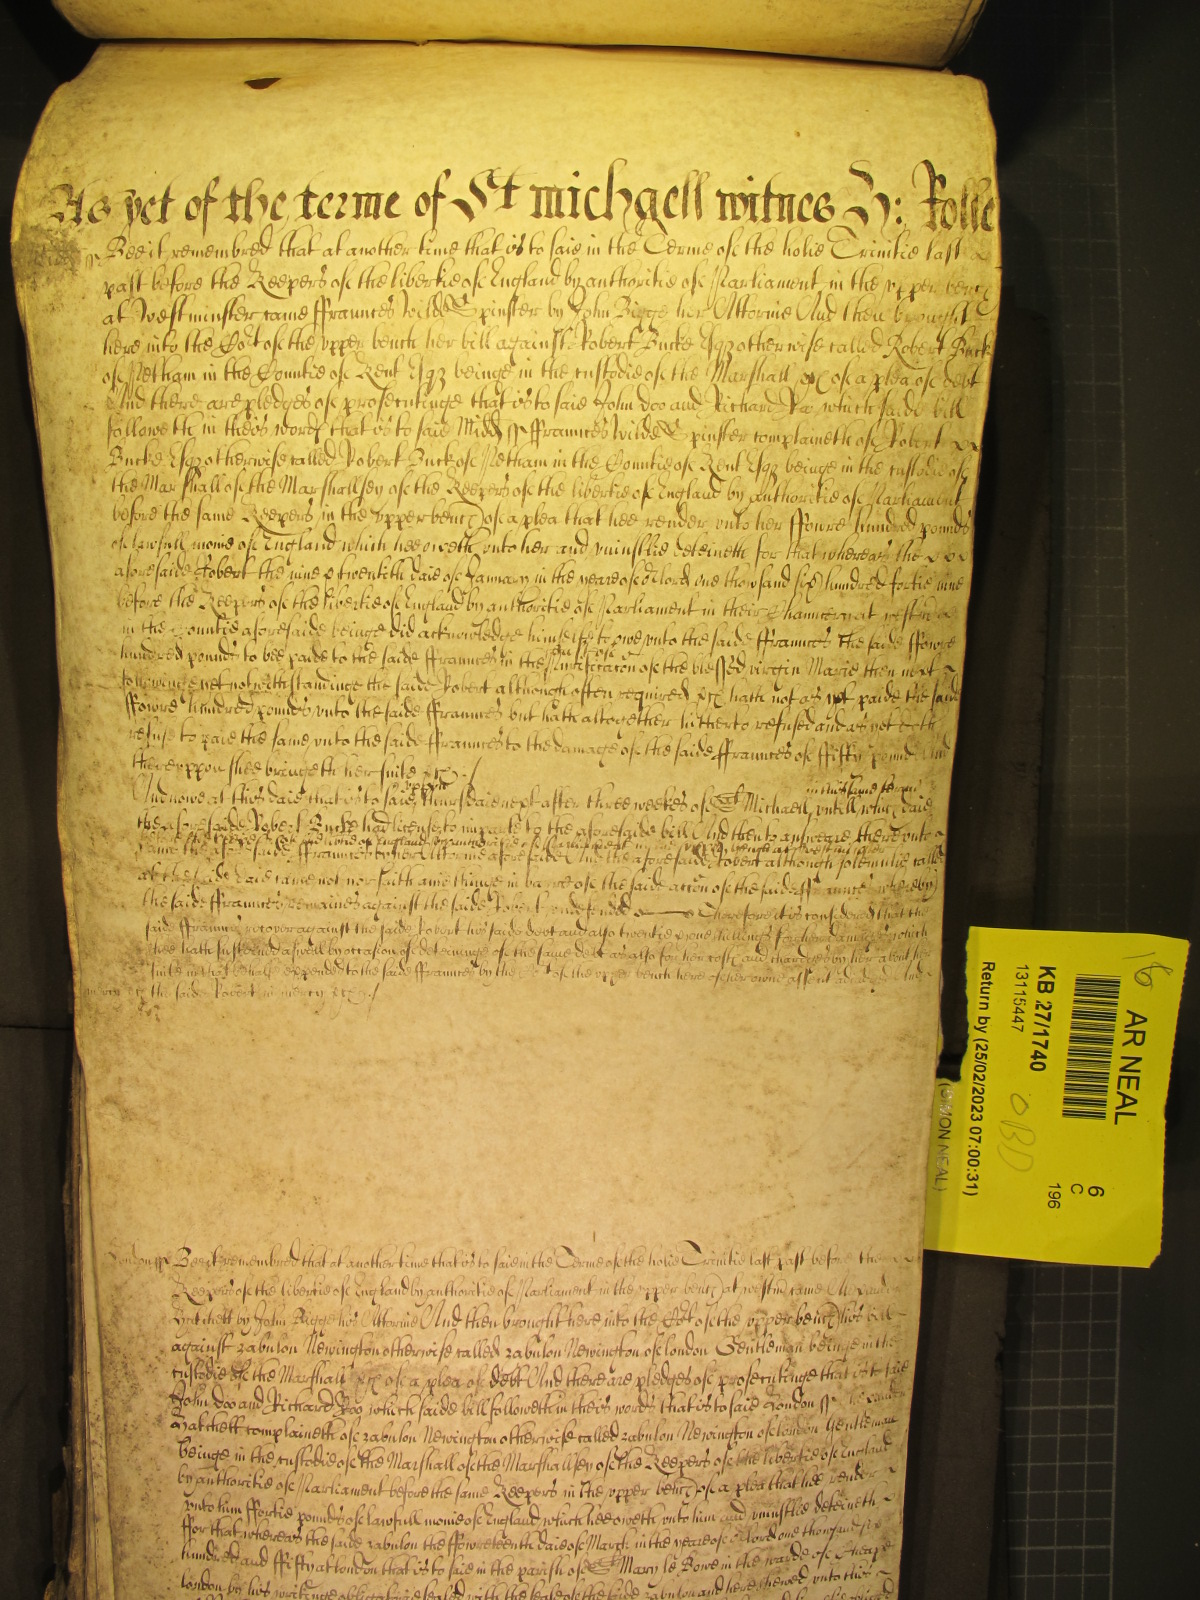 As yet of the terme of St michaell witnes H: Rolle
Bee it remembred that at another time that is to saie in the Terme of the holie Trinitie last
past before the Keepers of the libertie of England by authoritie of Parliament in the upper bench
at Westminster came ffrances Wilde Spinster by John Bigge her Attornie And then brought
here into the Cort of the upper bench her bill against Robert Bucke Esqz otherwise called Robert Buck
of Netham in the Countie of Kent Esqz beinge in the custodie of the Marshall &c of a plea of debt
And there are pledges of prosecutinge that is to saie John Doo and Richard Roo which saide bill
followeth in theis words that is to saie Midd ss ffrances Wilde Spinster complaineth of Robert
Bucke Esqz otherwise called Robert Buck of Netham in the Countie of Kent Esqz beinge in the custodie of
the Marshall of the Marshallsey of the Keepers of the libertie of England by authoritie of Parliament
before the same Keepers in the upper bench of a plea that hee render unto her ffowre hundred pounds
of lawfull monie of England which hee oweth unto her and uniustlie deteineth for that whereas the
aforesaide Robert the nine & twentith daie of January in the yeare of or Lord one thowsand six hundred fortie nine
before the Keepers of the libertie of England by authoritie of Parliament in their Chancery at Westm
in the Countie aforesaide beinge did acknowledge himselfe to owe unto the saide ffrances the saide ffowre
hundred pounds to bee paide to the saide ffrances in the Purificacon of the blessed virgin Marie then next
followinge yet notwithstandinge the saide Robert although often required &c hath not as yet paide the said
ffowre hundred pounds unto the saide ffrances but hath altogether hitherto refused and as yet doth
refuse to paie the same unto the saide ffrances to the damage of the saide ffrances of ffiftie pounds And
thereuppon shee bringeth her suite &c
in this same terme
And nowe at this daie that is to saie Thursdaie next after three weekes of St Michaell untill which daie
the aforesaide Robert Bucke had licence to imparle to the aforesaide bill And then to answeare there unto
came the aforesaide ffrances by her Attornie aforesaide And the aforesaide Robert although solemnlie called
at the saide daie came not nor saith anie thinge in barre of the saide accon of the saide ffrances whereby
the saide ffrances remaines against the saide Robert undefended Therefore it is considered that the
said ffrances recover against the saide Robert his saide debt and also twentie & one shillings for her damages which
shee hath susteined aswell by occasion of deteininge of the same debt as also for her costs and chardges by her about her
suite in that behalf expended to the saide ffrances by the Cort of the upper bench here of her owne assent adiudged And
in mercy the saide Robert in mercy &c
London ss Bee it remembred that at another time that is to saie in the Terme of the holie Trinitie last past before the
Keepers of the libertie of England by authoritie of Parliament in the upper bench at Westm came
Hatchett by John Bigge his Attornie And then brought here into the Cort of the upper bench his bill
against zabulon Newington otherwise called zabulon Newington of london Gentleman beinge in the
custodie of the Marshall &c of a plea of debt And there are pledges of prosecutinge that is to saie
John Doo and Richard Roo which saide bill followeth in theis words that is to saie London ss
Hatchett complaineth of zabulon Newington otherwise called zabulon Newington of london Gentleman
beinge in the custodie of the Marshall of the Marshallsey of the Keepers of the libertie of England
by authoritie of Parliament before the same Keepers in the upper bench of a plea that hee render
unto him ffortie pounds of lawfull monie of England which hee oweth unto him and uniustlie deteineth
ffor that whereas the saide zabulon the ffowreteenth daie of March in the yeare of or Lord one thowsand six
hundred and ffifty at london that is to saie in the parish of St Mary le Bowe in the warde of Cheape
london by his writinge obligatorie sealed with the seale of the saide zabulon and here shewed unto the
16
AR NEAL
KB 27/1740
13115447
OBD
Return by (25/02/2023 07:00:31)
(SIMON NEAL)
6
C
196